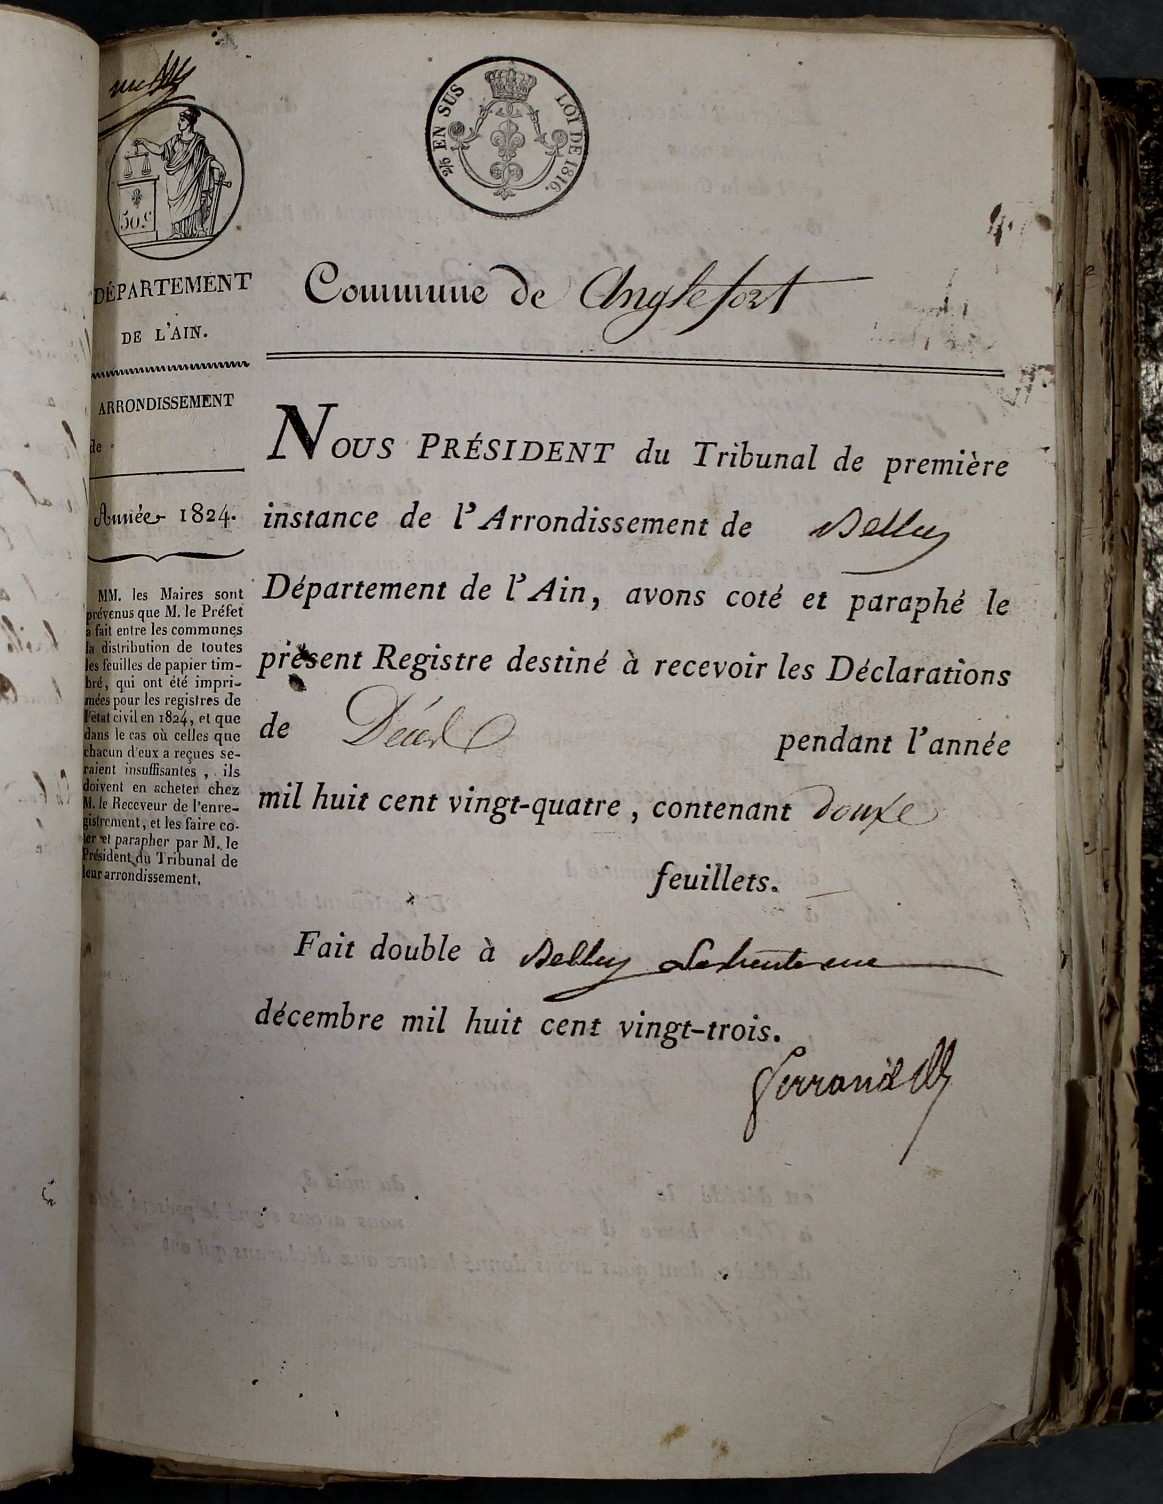 50 c
2/6 EN SUS LOI DE 1816.
DÉPARTEMENT
DE L'AIN.
ARRONDISSEMENT
de
Année 1824.
MM. les Maires sont
prévenus que M. le Préfet
a fait entre les communes
la distribution de toutes
les feuilles de papier tim-
bré, qui ont été impri-
mées pour les registres de
l'état civil en 1824, et que
dans le cas où celles que
chacun d'eux a reçues se-
raient insuffisantes, ils
doivent en acheter chez
M. le Receveur de l'enre-
gistrement, et les faire co-
ter et parapher par M. le
Président du Tribunal de
leur arrondissement.
Commune de Anglefort
NOUS PRÉSIDENT du Tribunal de première
instance de l'Arrondissement de Belley
Département de l'Ain, avons coté et paraphé le
présent Registre destiné à recevoir les Déclarations
de Décès pendant l'année
mil huit cent vingt-quatre, contenant douze
feuillets.
Fait double à Belley Le trente un
décembre mil huit cent vingt-trois.